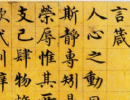 言箴
人心之動因
斯靜專矧
榮辱惟其
支己肆物